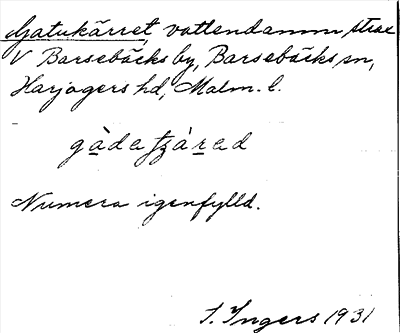 Gatukärret, vattendamm strax
V Barsebäcks by, Barsebäcks sn,
Harjagers hd, Malm. l.
gàdetʃàred
Numera igenfylld.
I. Ingers 1931